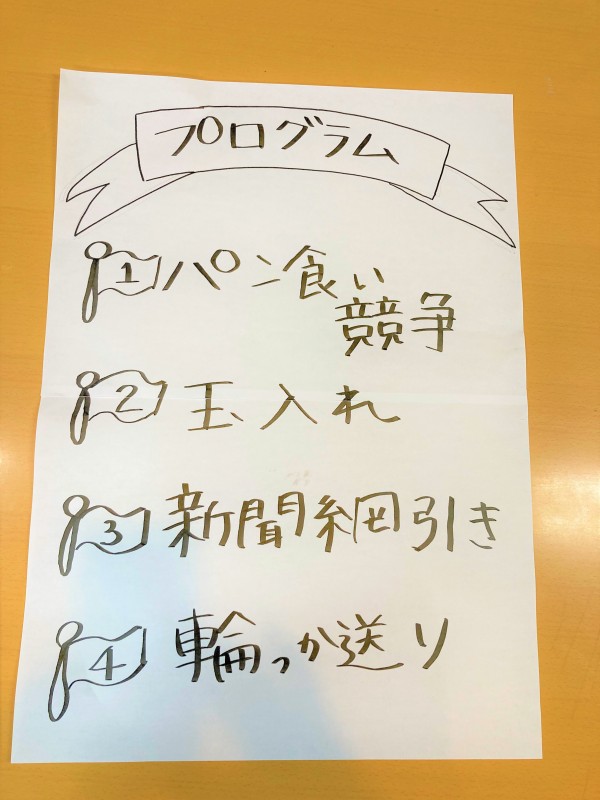 プログラム
1 パン食い
競争
2 玉入れ
3 新聞綱引き
4 輪っか送り